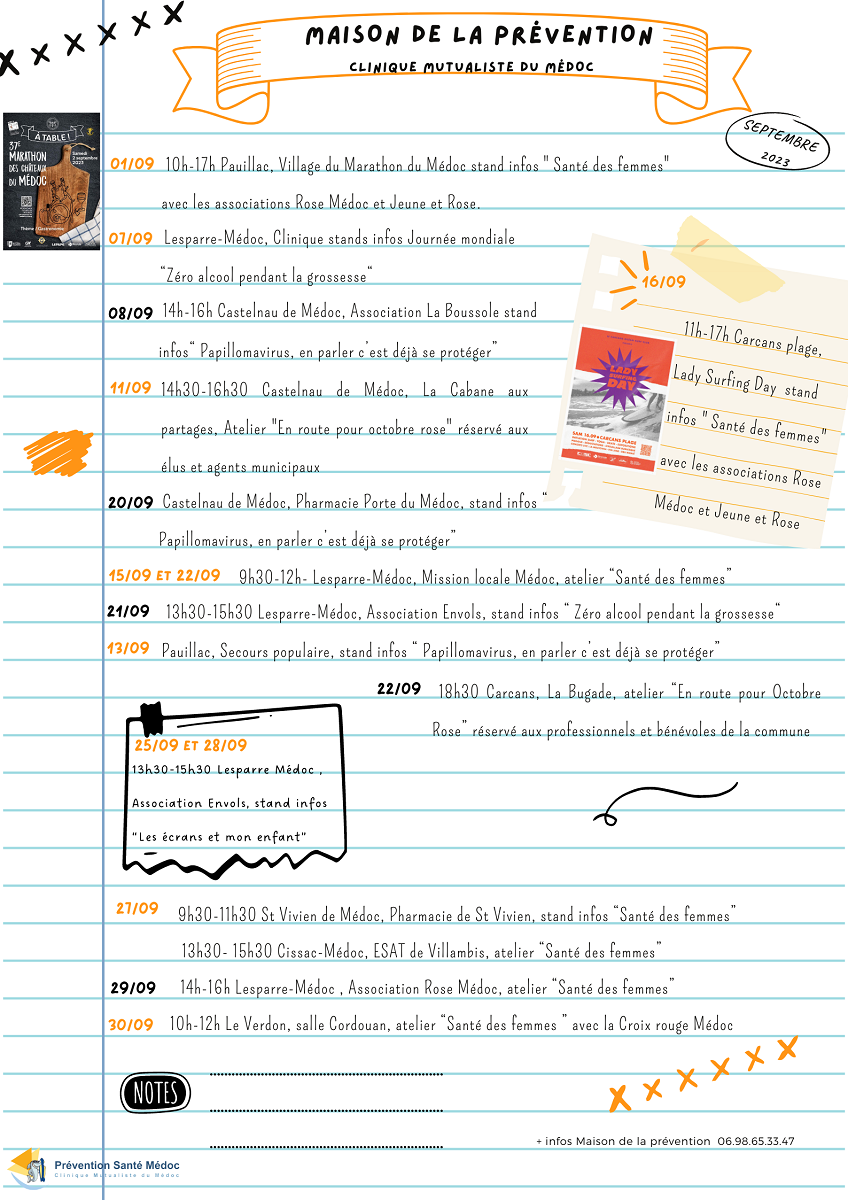 MAISON DE LA PRÉVENTION
CLINIQUE MUTUALISTE DU MÉDOC
SEPTEMBRE
2023
À TABLE !
37E
MARATHON
DES CHÂTEAUX
DU MÉDOC
Samedi
2 septembre
2023
Thème : Gastronomie
01/09 10h-17h Pauillac, Village du Marathon du Médoc stand infos " Santé des femmes"
avec les associations Rose Médoc et Jeune et Rose.
07/09 Lesparre-Médoc, Clinique stands infos Journée mondiale
“Zéro alcool pendant la grossesse“
08/09 14h-16h Castelnau de Médoc, Association La Boussole stand
infos“ Papillomavirus, en parler c'est déjà se protéger”
11/09 14h30-16h30 Castelnau de Médoc, La Cabane aux
partages, Atelier "En route pour octobre rose" réservé aux
élus et agents municipaux
20/09 Castelnau de Médoc, Pharmacie Porte du Médoc, stand infos “
Papillomavirus, en parler c'est déjà se protéger”
16/09
11h-17h Carcans plage,
Lady Surfing Day stand
infos " Santé des femmes"
avec les associations Rose
Médoc et Jeune et Rose
LADY
SURFING
DAY
SAM 16.09 CARCANS PLAGE
15/09 ET 22/09 9h30-12h- Lesparre-Médoc, Mission locale Médoc, atelier “Santé des femmes”
21/09 13h30-15h30 Lesparre-Médoc, Association Envols, stand infos “ Zéro alcool pendant la grossesse“
13/09 Pauillac, Secours populaire, stand infos “ Papillomavirus, en parler c'est déjà se protéger”
22/09 18h30 Carcans, La Bugade, atelier “En route pour Octobre
Rose” réservé aux professionnels et bénévoles de la commune
25/09 ET 28/09
13h30-15h30 Lesparre Médoc ,
Association Envols, stand infos
"Les écrans et mon enfant"
27/09 9h30-11h30 St Vivien de Médoc, Pharmacie de St Vivien, stand infos “Santé des femmes”
13h30- 15h30 Cissac-Médoc, ESAT de Villambis, atelier “Santé des femmes”
29/09 14h-16h Lesparre-Médoc , Association Rose Médoc, atelier “Santé des femmes”
30/09 10h-12h Le Verdon, salle Cordouan, atelier “Santé des femmes ” avec la Croix rouge Médoc
NOTES
+ infos Maison de la prévention 06.98.65.33.47
Prévention Santé Médoc
Clinique Mutualiste du Médoc